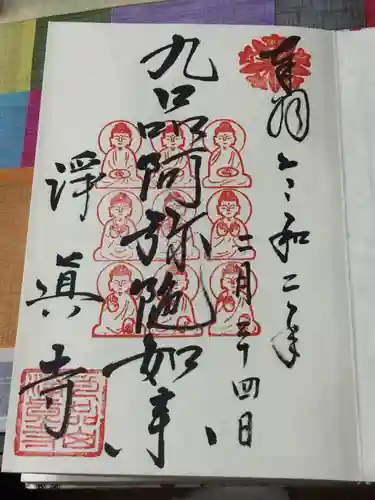 奉拝 令和二年
二月二十四日
九品阿弥陀如来
淨眞寺